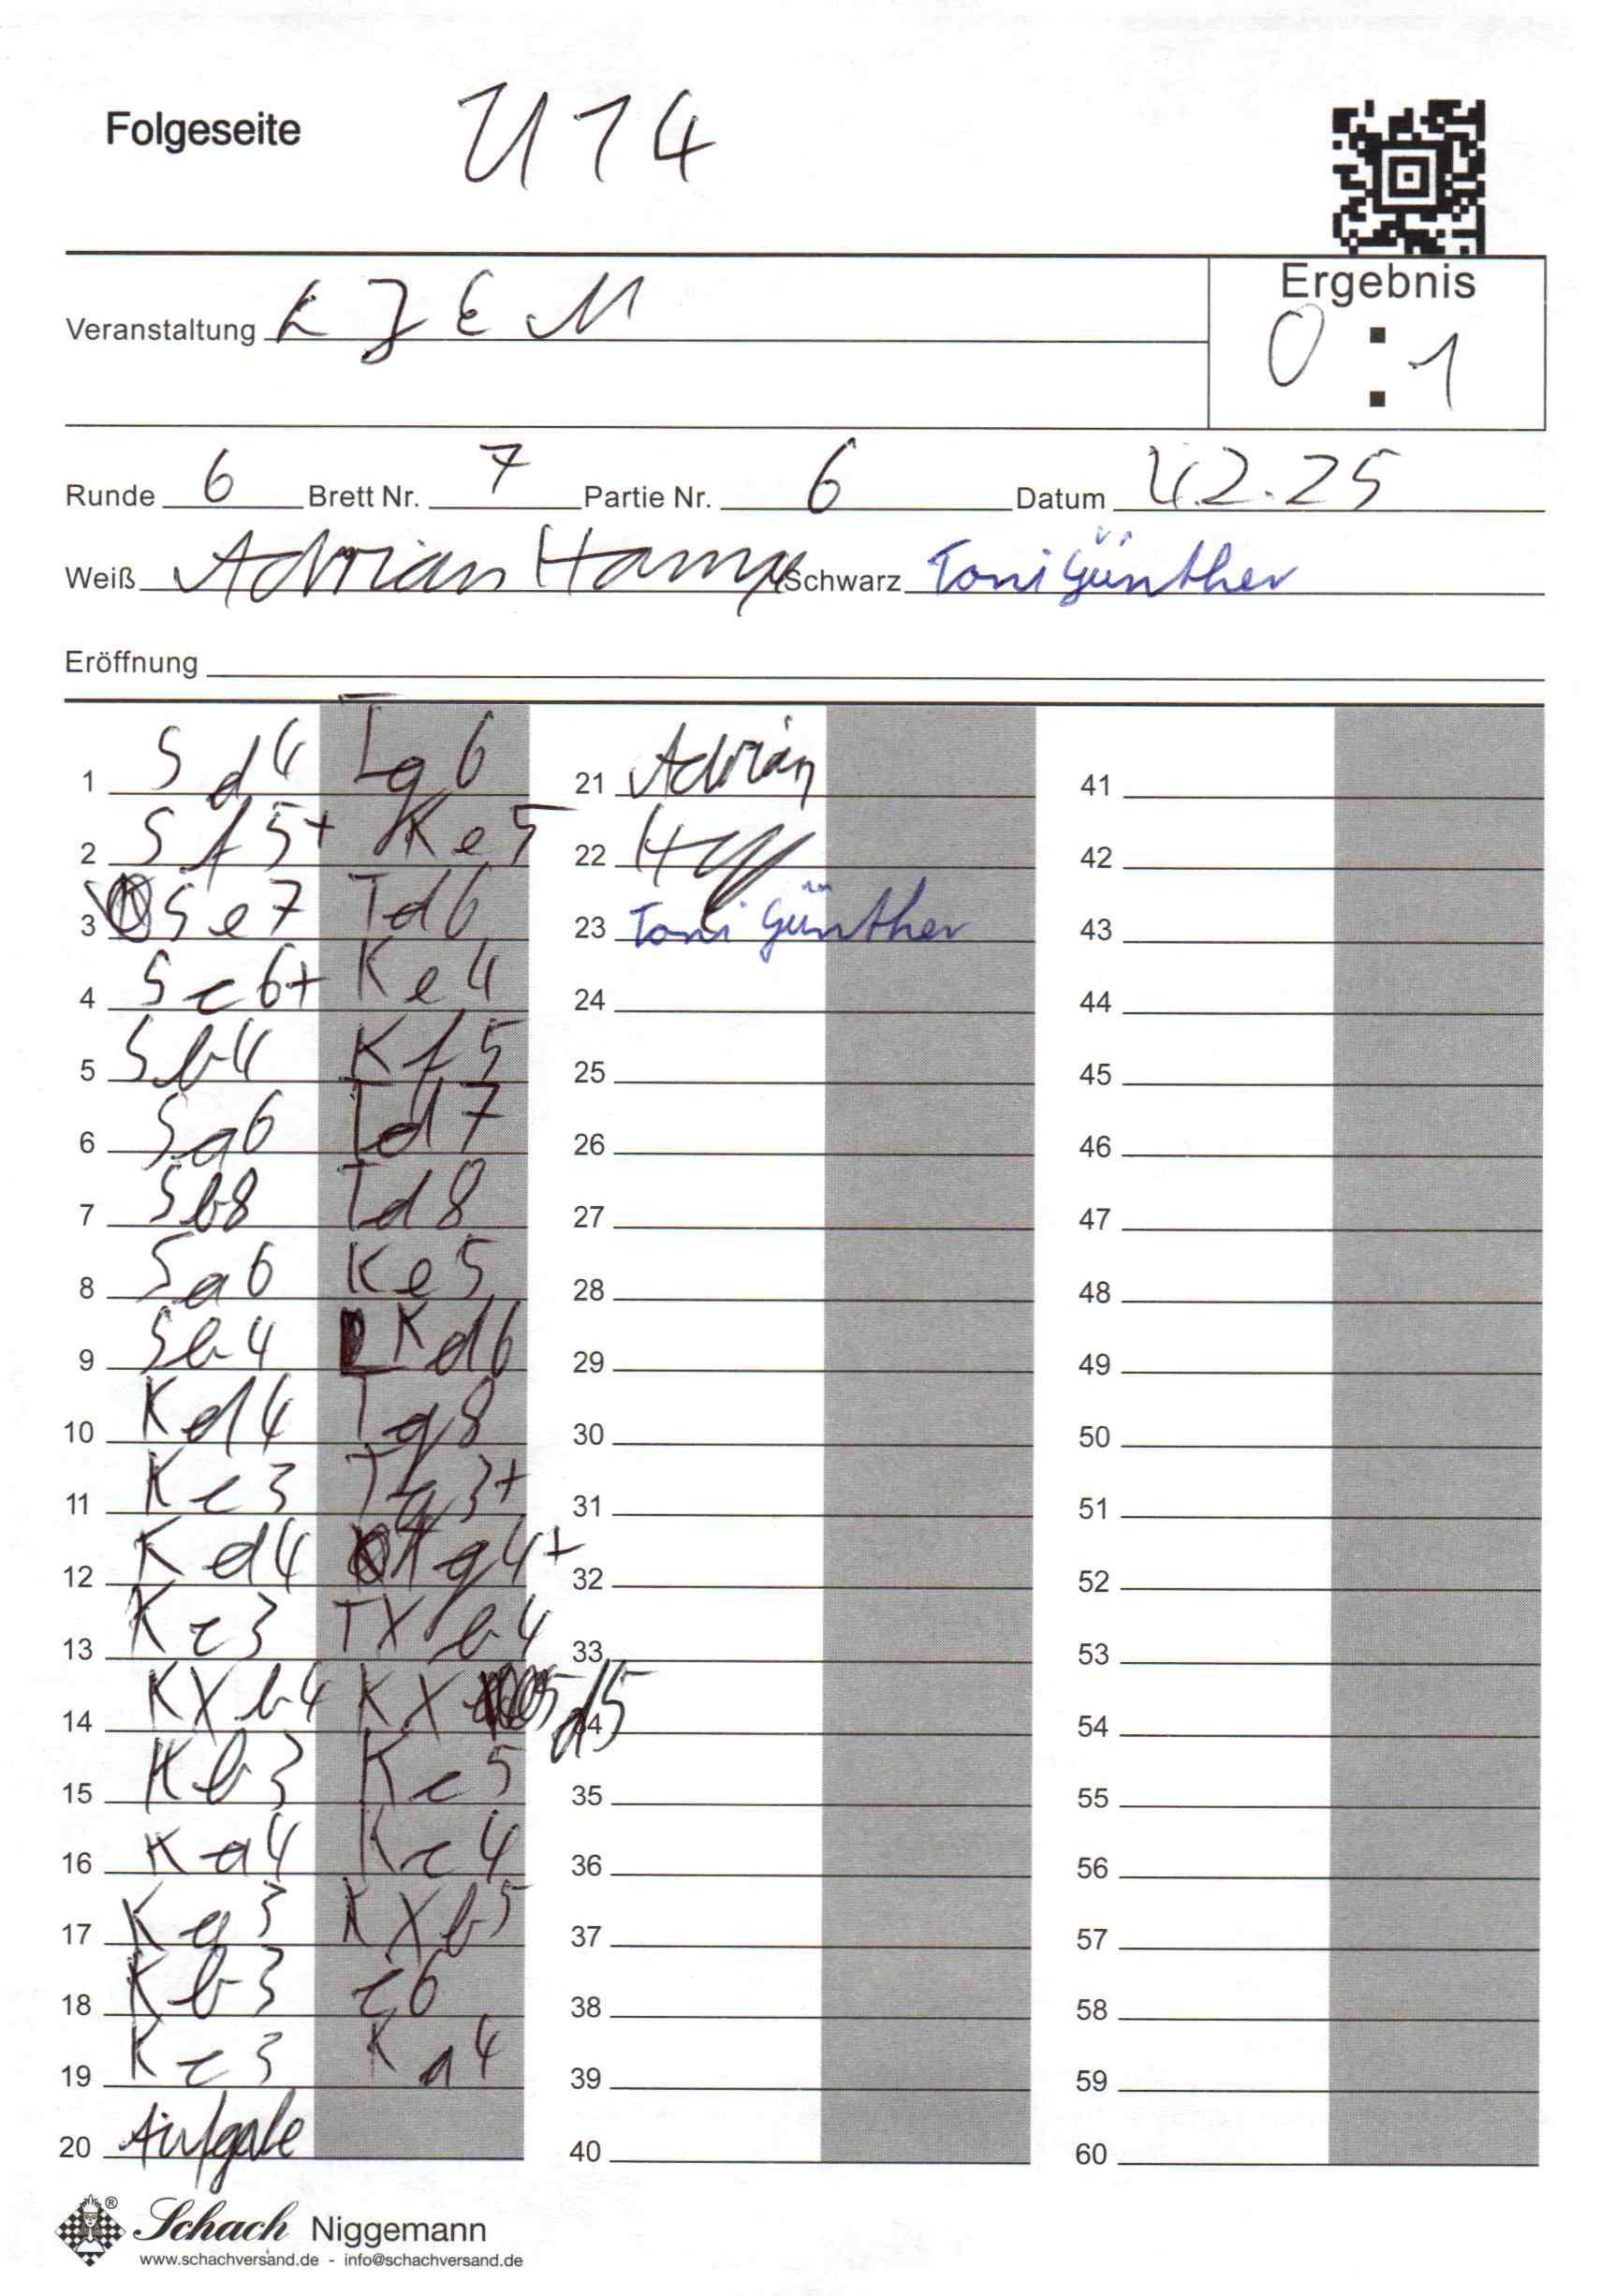 Folgeseite U14
Veranstaltung KJEM
Ergebnis
0 : 1
Runde 6 Brett Nr. 7 Partie Nr. 6 Datum 4.2.25
Weiß Adrian Schwarz Toni Günther
Eröffnung
1 Sd4 Tg6
2 Sf5+ Ke5
3 Se7 Td6
4 Sc6+ Ke4
5 Sb4 Kf5
6 Sa6 Td7
7 Sb8 Td8
8 Sa6 Ke5
9 Sb4 Kd6
10 Kd4 Tg8
11 Kc3 Tg3+
12 Kd4 Tg4+
13 Kc3 TXb4
14 KXb4 KXd5
15 Kb3 Kc5
16 Ka4 Kc4
17 Ka3 KXb5
18 Kb3 c6
19 Kc3 Ka4
20 Aufgabe
21 Adrian
22
23 Toni Günther
24
25
26
27
28
29
30
31
32
33
34
35
36
37
38
39
40
41
42
43
44
45
46
47
48
49
50
51
52
53
54
55
56
57
58
59
60
Schach Niggemann
www.schachversand.de - info@schachversand.de